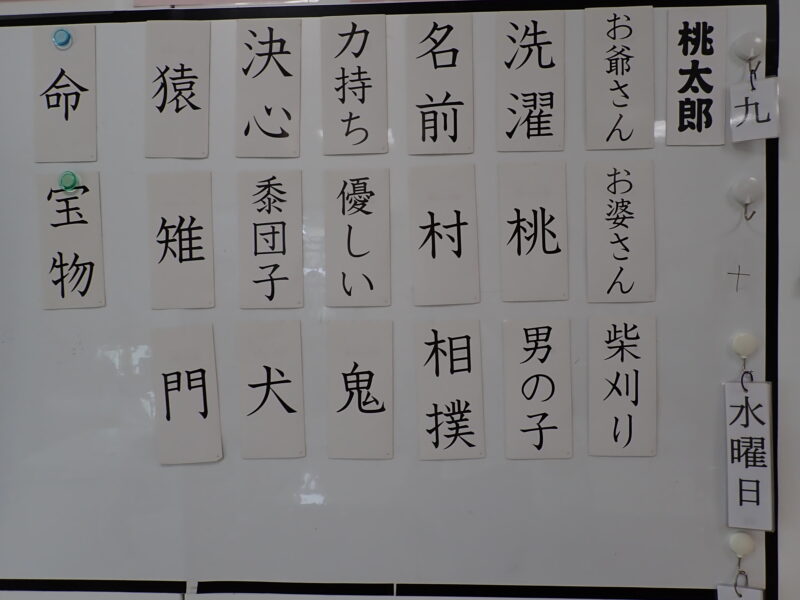 九
十
水曜日
桃太郎
お爺さん
お婆さん
柴刈り
洗濯
桃
男の子
名前
村
相撲
力持ち
優しい
鬼
決心
黍団子
犬
猿
雉
門
命
宝物